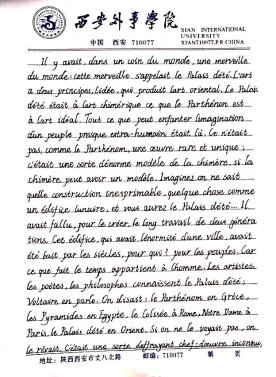 西安外事学院
XIAN INTERNATIONAL
UNIVERSITY
中国 西安 710077
XIAN710077,P.R CHINA
Il y avait, dans un coin du monde, une merveille
du monde: cette merveille s'appelait le Palais d'été. L'art
a deux principes, l'idée, qui produit l'art oriental. Le Palais
d'été était à l'art chimérique ce que le Parthénon est
à l'art idéal. Tout ce que peut enfanter l'imagination
d'un peuple presque extra-humain était là. Ce n'était
pas, comme le Parthénon, une œuvre rare et unique;
c'était une sorte d'énorme modèle de la chimère, si la
chimère peut avoir un modèle. Imaginez on ne sait
quelle construction inexprimable, quelque chose comme
un édifice lunaire, et vous aurez le Palais d'été... Il
avait fallu, pour le créer, le long travail de deux généra
tions. Cet édifice, qui avait l'énormité d'une ville, avait
été bâti par les siècles, pour qui? pour les peuples. Car
ce que fait le temps appartient à l'homme. Les artistes,
les poètes, les philosophes connaissaient le Palais d'été;
Voltaire en parle. On disait: le Parthénon en Grèce,
les Pyramides en Egypte, le Colisée à Rome, Notre-Dame à
Paris, le Palais d'été en Orient. Si on ne le voyait pas, on
le rêvait. C'était une sorte d'effrayant chef-d'œuvre inconnu
地址: 陕西西安市丈八北路 邮编: 710077 第 页